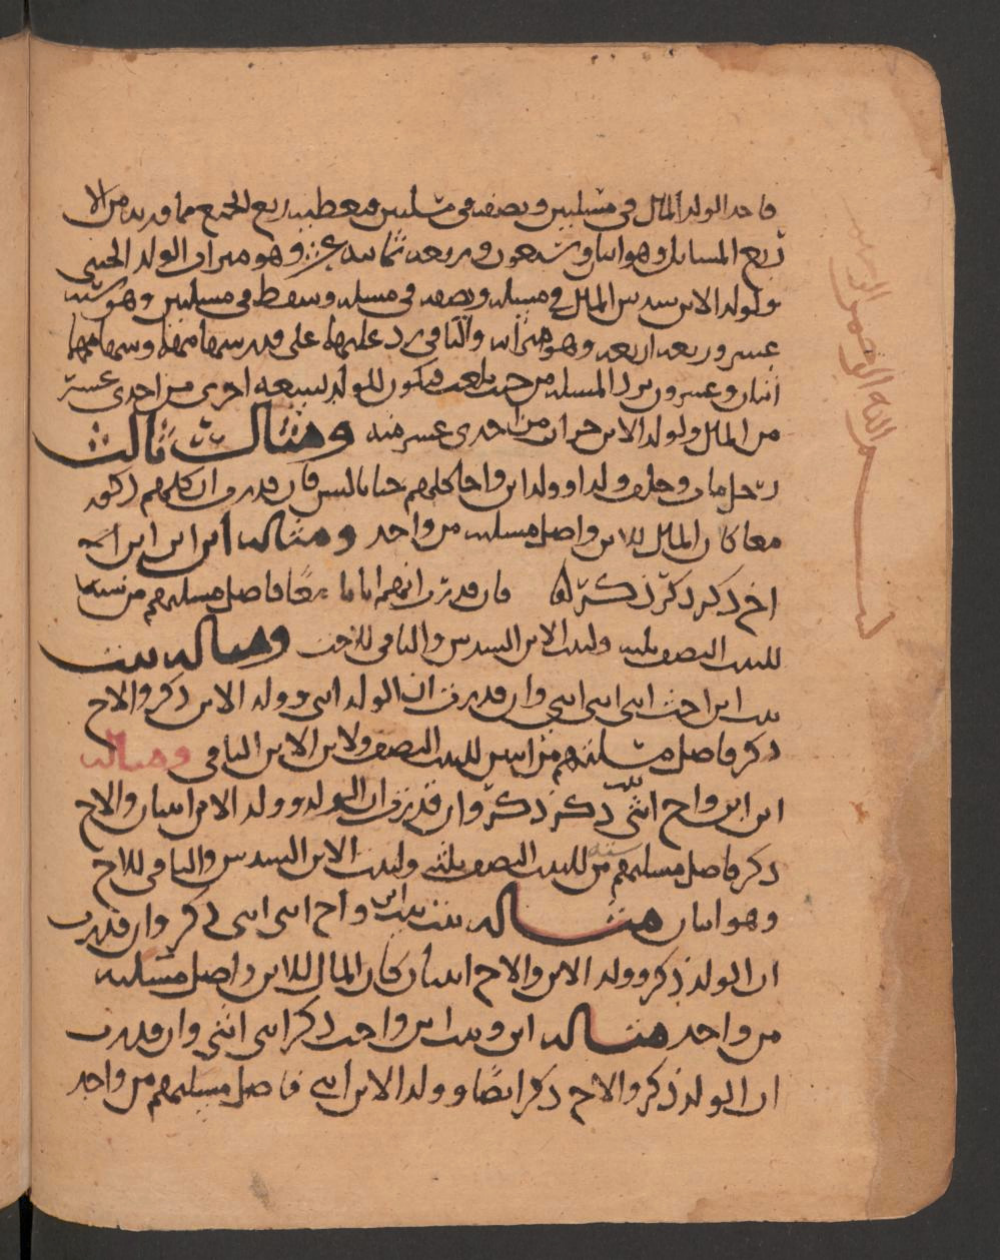 فاحد الولد المال في مسلتين ونصفه في مسلتين فتعطيه ربع الجميع مما قد يد من الا
ربع المسايل وهو اثنان وتسعون وربعه ثمانيه عشر وهو ميراث الولد الخنثى
ولولد الابن سدس المال في مسله ونصفه في مسله وسقط في مسلتين وهو سته
عشر وربعه اربعه وهو ميراثه والباقي رد عليهما على قدر سهامهما وسهامهما
اثنان وعشرون يرد المسله من حيث بلغت فيكون للولد تسعه اجزى من احدى عشر
من المال ولولد الابن جزان من احدى عشر منه ومثال ثالث
رجل مات وخلف ولدا وولد ابن واخا كلهم خناثا لبس فان قدرت ان كلهم ذكور
معا كان المال للابن واصل مسلته من واحد ومثاله ابن ابن ابن
اخ ذكر ذكر ذكر فان قدرت انهم اناثا معا فاصل مسلتهم من سته
للبنت النصف ثلثه ولبنت الابن السدس والباقي للاخت ومثاله بنت
بنت ابن اخت انثى انثى انثى وان قدرت ان الولد انثى وولد الابن ذكر والاخ
ذكر فاصل مسلتهم من اثنين للبنت النصف ولابن الابن الباقي ومثاله
ابن ابن واخ انثى ذكر ذكر وان قدرت ان الولد وولد الابن انثيان والاخ
ذكر فاصل مسلتهم من سته للبنت النصف ثلثه ولبنت الابن السدس والباقي للاخ
وهو اثنان مثاله بنت بنت ابن واخ انثى انثى ذكر وان قدرت
ان الولد ذكر وولد الابن والاخ انثيان كان المال للابن واصل مسلته
من واحد مثاله ابن وبنت ابن واخت ذكر انثى انثى وان قدرت
ان الولد ذكر والاخ ذكر ايضا وولد الابن انثى فاصل مسلتهم من واحد
بسم الله الرحمن الرحيم